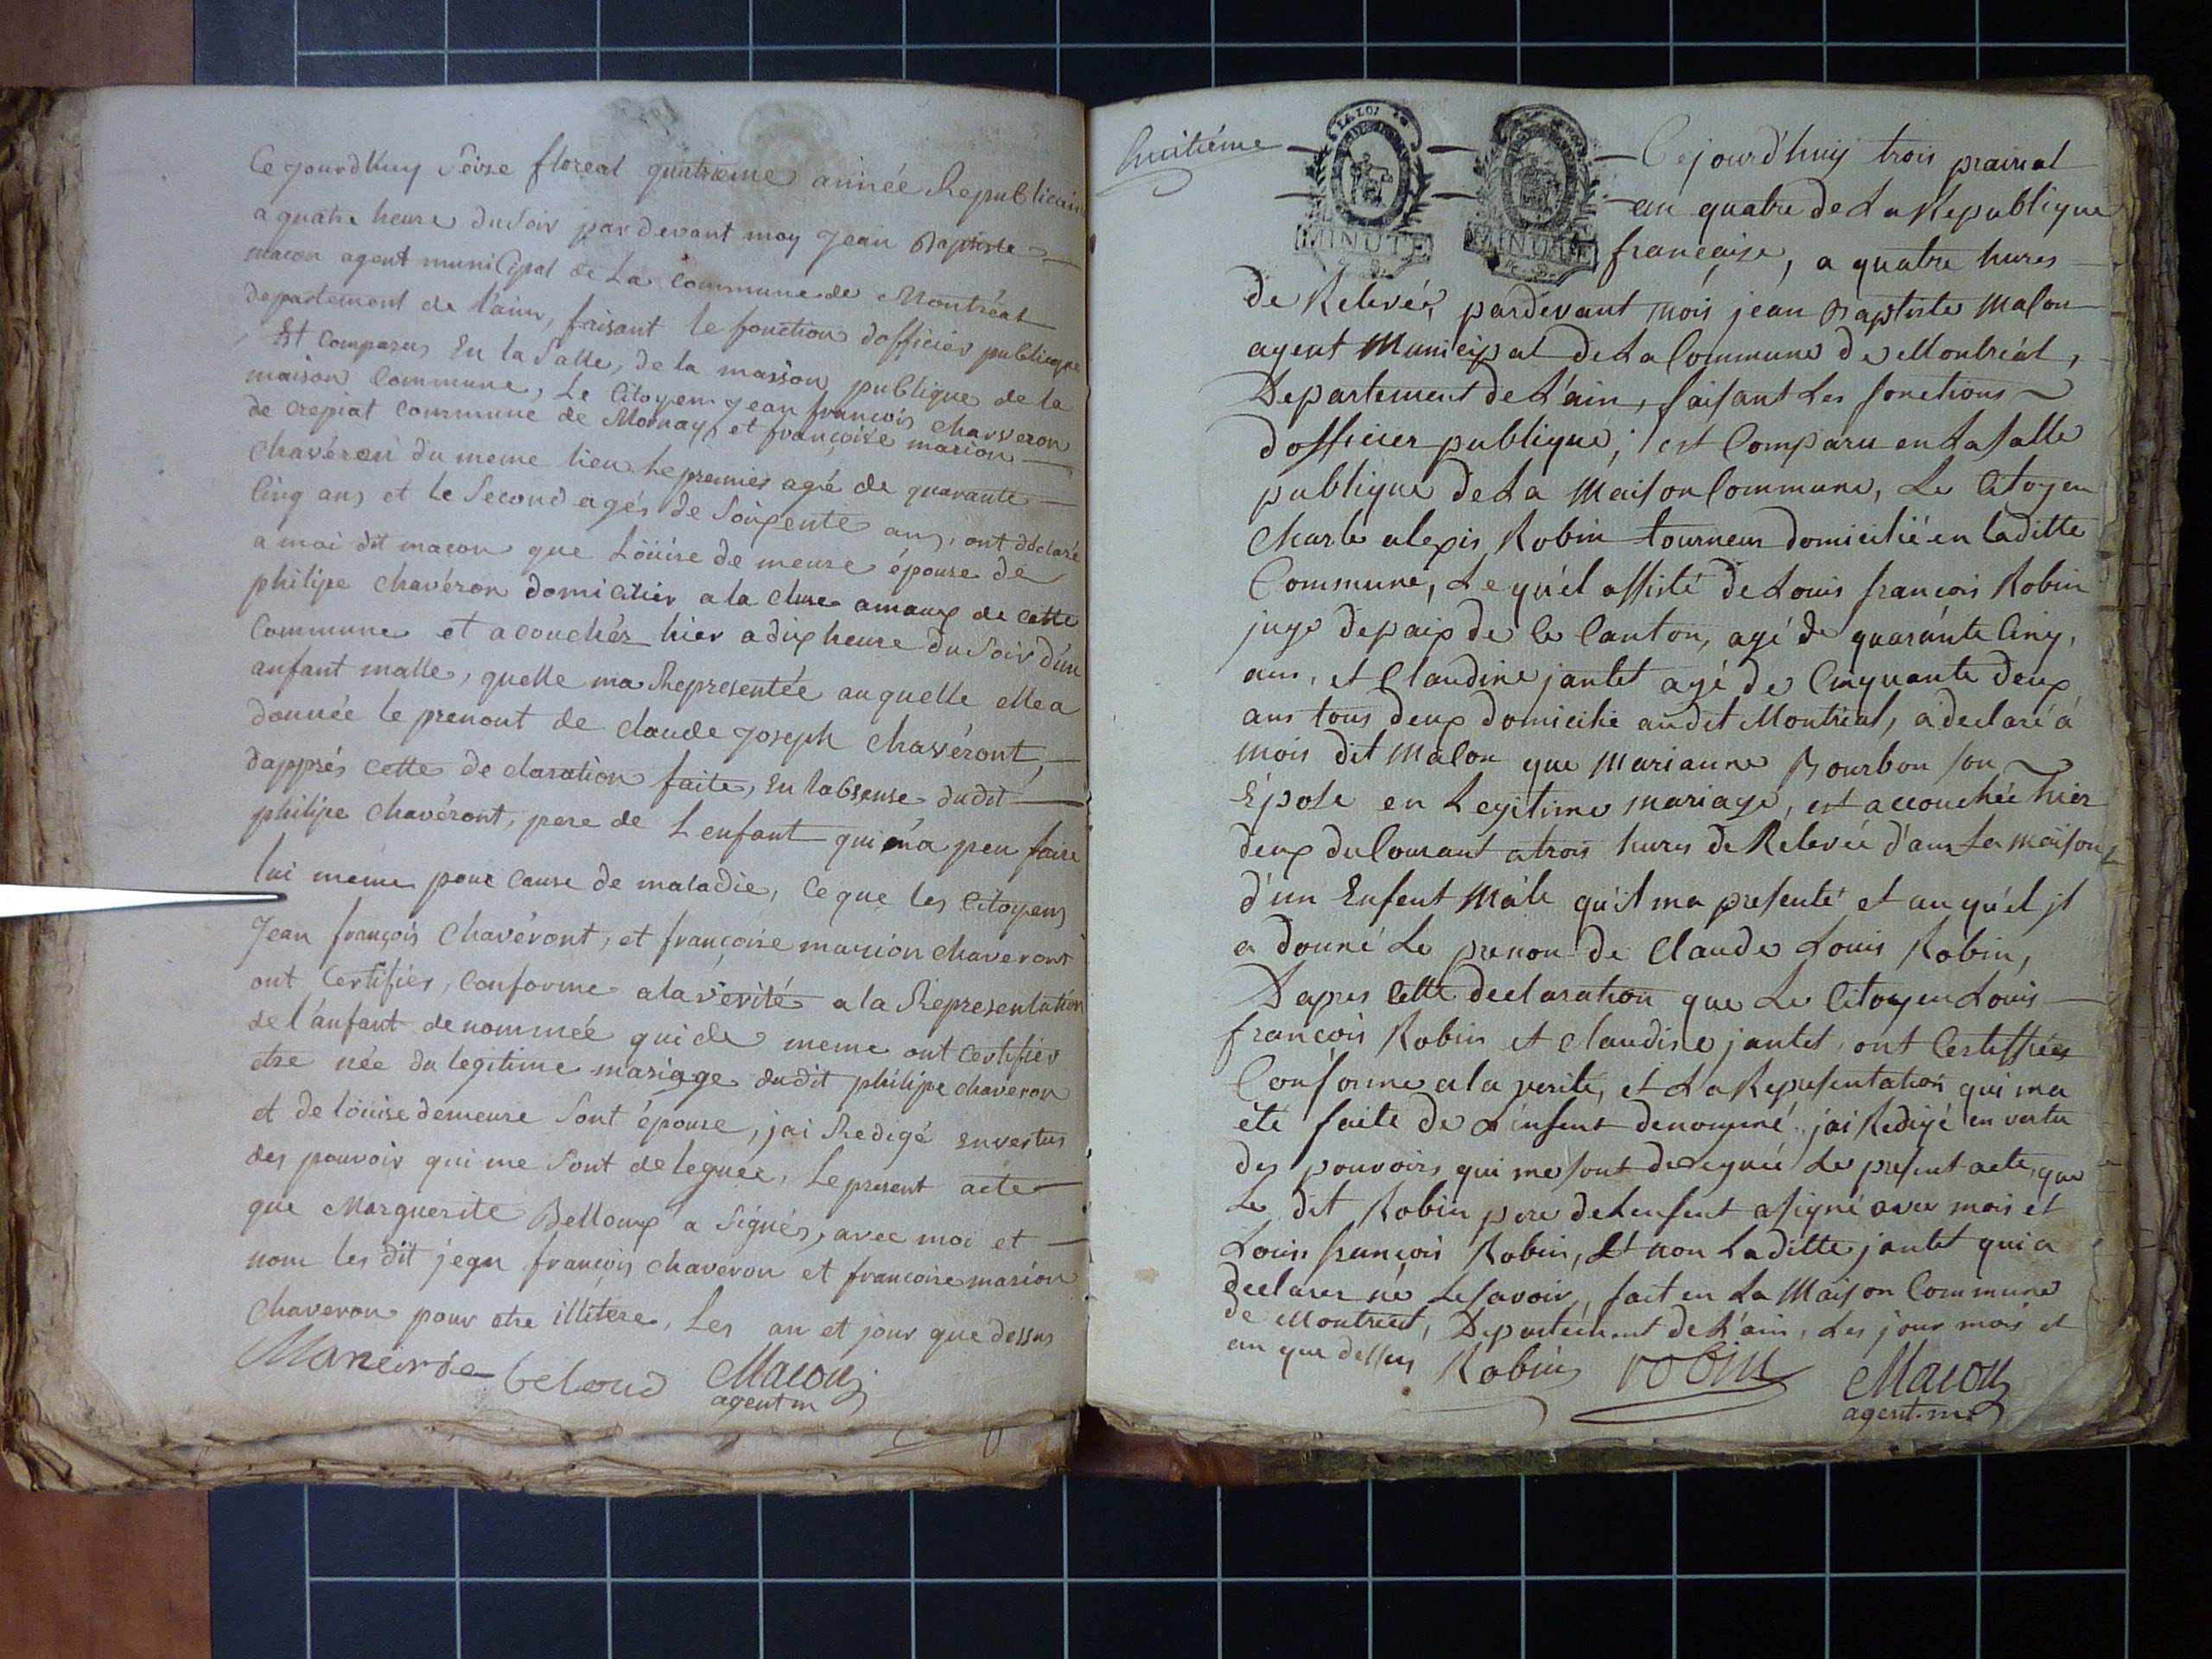 Ce jourdhuy seize floreal quatrieme année Republicain
a quatre heure du soir par devant moy jean Baptiste
macon agent municipal de La Commune de Montréal
departement de l'ain, faisant le fonction dofficier publicque
Est Comparus En la Salle, de la maison publique de la
maison Commune, Le Citoyen jean françois charveron
de crepiat commune de Mornay, et françoise marion
chavéron du meme lieu le premier agé de quarante
Cinq ans et le Second agés de Soixente ans, ont déclaré
a moi dit macon que Loüise de meure épouse de
philipe chavéron domicilier a la cluse amaux de cette
Commune et acouchér hier a dix heure du Soir d'un
anfant malle, quelle ma Representée auquelle elle a
donnée le prenont de claude joseph chavéront,
dapprés cette declaration faite, En labsense dudit
philipe chavéront, pere de Lenfant qui na peu faire
lui meme pour cause de maladie, ce que les Citoyens
Jean françois Chavéront, et françoise marion chaveront
ont Certifier, Conforme a la vérité a la Representation
de l'anfant denommée qui de meme ont certifier
etre née du legitime mariage dudit philipe chaveron
et de loüise demeure Sont épouse, jai Redigé envertus
des pouvoir qui me Sont deleguée, Le present acte
que Marguerite Belloux a Signés, avec moi et
nom les dit jean françois chaveron et francoise marion
Chaveron pour etre illitere, Les an et jour que dessus
beloud Macon
agent m
huitiéme
LA LOI
MINUTE
MINUTE
Cejourd'huy trois prairial
an quatre de La Republique
française, a quatre hures
de Relevée, pardevant mois jean Baptiste Mason
agent Municipal de La Commune de Montréal,
Departement de L'ain, faisant Les fonctions
dofficier publique, est Comparu en La salle
publique de La Maison Commune, Le Citoyen
Charle alexis Robin tourneur domicilié en laditte
Commune, Lequ'el assisté de Louis françois Robin
juge depaix de ce Canton, agé de quaránte Cinq,
ans, et Claudine jantet agé de Cinquante deux
ans tous deux domicilié audit Montréal, a declaré á
mois dit Mason que Marianne Bourbon son
Épose en Legitime mariage, est accouchée hier
deux du Courant a trois hures de Relevée d'ans La maison
d'un Enfent Mâle qu'il ma presenté et auqu'el jl
a donné Le prenon de Claude Louis Robin,
Dapres Cette declaration que Le Citoyen Louis
françois Robin et Claudine jantet, ont Certiffiées
Conforme a la verite, et La Representation qui ma
été faite de L'enfent denommé jai Redigé en vertu
des pouvoirs qui me sont deleguée Le present acte, que
Le dit Robin pere de Lenfent a signé avec mois et
Louis françois Robin, et non Laditte jantet qui a
declarer né Le savoir, fait en La Maison Commune
de Montréal, Departement de L'ain, Les jour mois et
an que dessus Robin robin Macon
agent m.